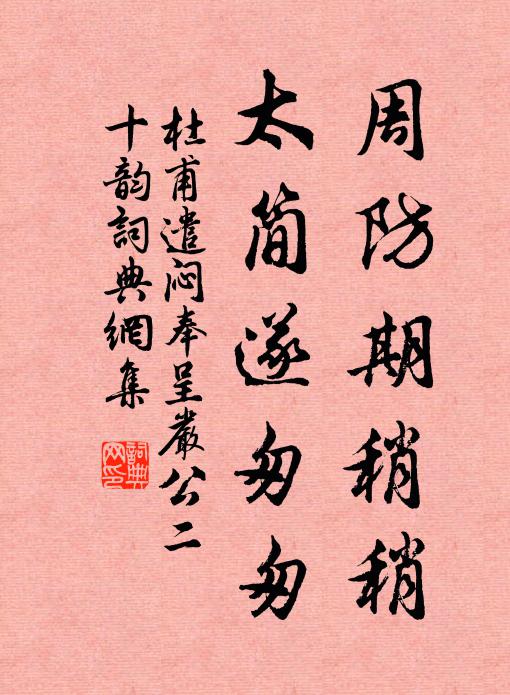 周防期稍稍
太简遂匆匆
杜甫遣闷奉呈嚴公二
十韵詞典網集
詞典
网印